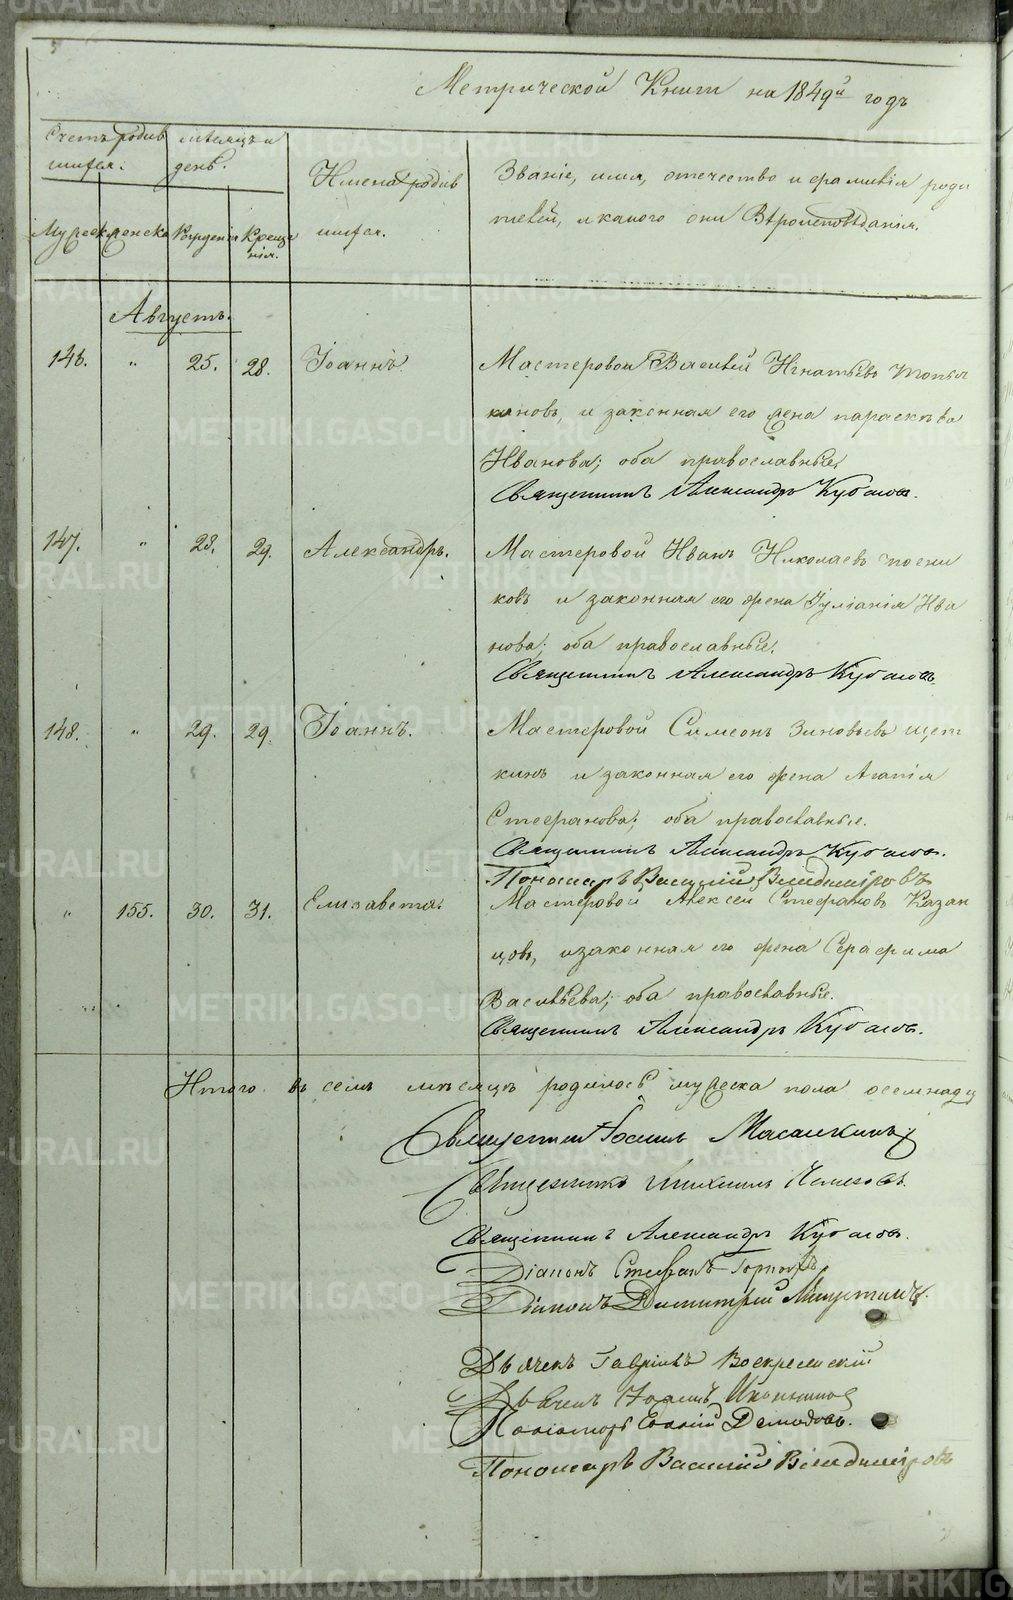 Метрической Книги на 1849й годъ
Счетъ родив
шихся.
Мѣсяцъ и
день.
Имена родив
шихся.
Званіе, имя, отечество и фамилія роди
телей, и какого они Вѣроисповѣданія.
Мужеск
женска
Рожденія
Креще
нія.
Августъ.
146. " 25. 28. Іоаннъ. Мастеровой Василій Игнатьевъ
и законная его жена Параскева
Иванова; оба православные.
Священникъ Александръ Кубасовъ.
147. " 28. 29. Александръ. Мастеровой Иванъ Николаевъ
ковъ и законная его жена Іуліанія Ива
нова; оба православные.
Священникъ Александръ Кубасовъ.
148. " 29. 29. Іоаннъ. Мастеровой Симеонъ Зиновьевъ Щет
кинъ и законная его жена Агапія
Стефанова; оба православные.
Священникъ Александръ Кубасовъ.
Пономарь Василій Владиміровъ
" 155. 30. 31. Елизавета. Мастеровой Алексей Стефановъ Казан
цовъ, и законная его жена Серафима
Васильева; оба православные.
Священникъ Александръ Кубасовъ.
Итого въ семъ мѣсяцѣ родилось мужеска пола осемнадц
Священникъ
Священникъ Михаилъ
Священникъ Александръ Кубасовъ.
Діаконъ Стефанъ
Діаконъ Димитрій
Дьячекъ Гавріилъ Воскресенскій
Дьячекъ Іоаннъ
Пономарь Демидовъ.
Пономарь Василій Владиміровъ
METRIKI.GASO-URAL.RU